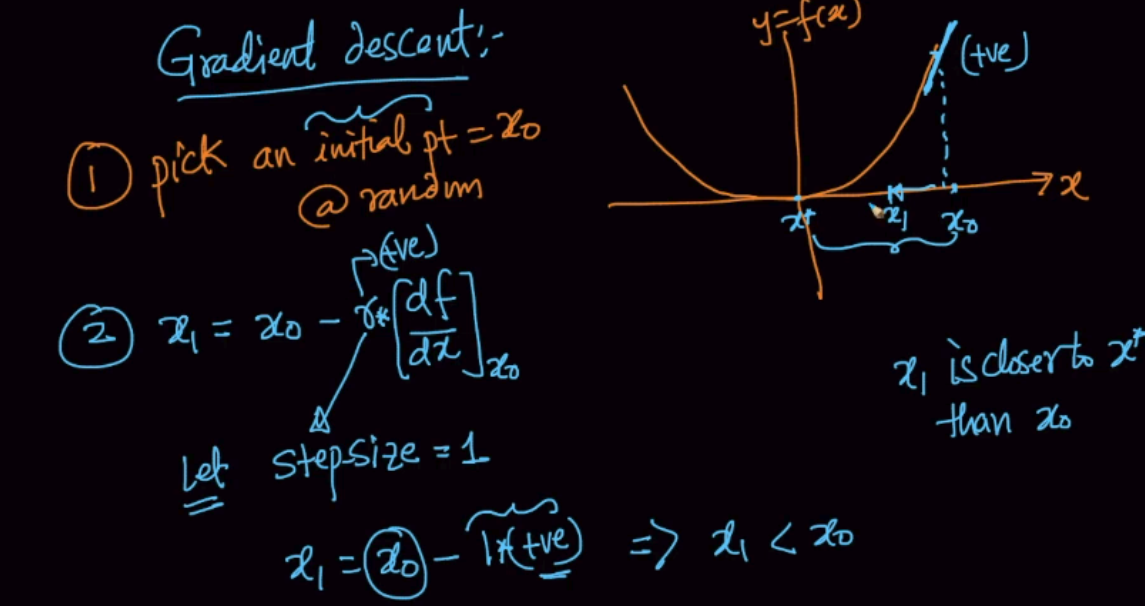 Gradient descent:-
① pick an initial pt = x₀
@ random
→(+ve)
② x₁ = x₀ - r* [df/dx]x₀
Let stepsize = 1
x₁ = x₀ - 1*(+ve) => x₁ < x₀
y=f(x)
(+ve)
x
x* x₁ x₀
x₁ is closer to x*
than x₀